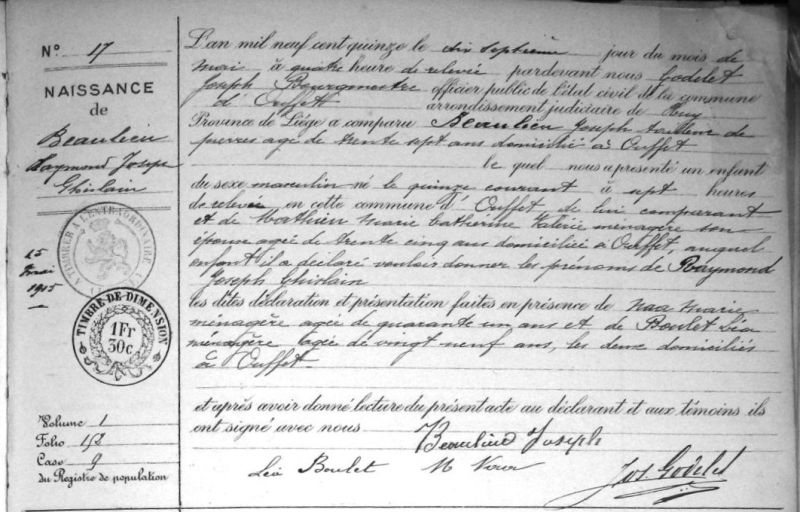 N° 17
NAISSANCE
de
Beaulieu
Raymond Joseph
Ghislain
A TIMBRER A L'EXTRAORDINAIRE
15
mai
1915
TIMBRE-DE-DIMENSION
1 Fr
30c
Volume 1
Folio 152
Case 9
du Registre de population
L'an mil neuf cent quinze le dix septième jour du mois de
mai à quatre heure de relevée pardevant nous Godelet
Joseph Bourgmestre officier public de l'état civil de la commune
d'Ouffet arrondissement judiciaire de Huy
Province de Liége a comparu Beaulieu Joseph tailleur de
pierres agé de trente sept ans domicilié à Ouffet
le quel nous a présenté un enfant
du sexe masculin né le quinze courant à sept heures
de relevée en cette commune d'Ouffet de lui comparant
et de Mathieu Marie Catherine Valérie ménagère son
épouse agée de trente cinq ans domiciliée à Ouffet auquel
enfant il a déclaré vouloir donner les prénoms de Raymond
Joseph Ghislain
les dites déclaration et présentation faites en présence de Marie
ménagère agée de quarante un ans et de Boulet Léa
ménagère agée de vingt neuf ans, les deux domiciliés
à Ouffet.
et après avoir donné lecture du présent acte au déclarant et aux témoins ils
ont signé avec nous
Beaulieu Joseph
Léa Boulet M
Jos. Godelet